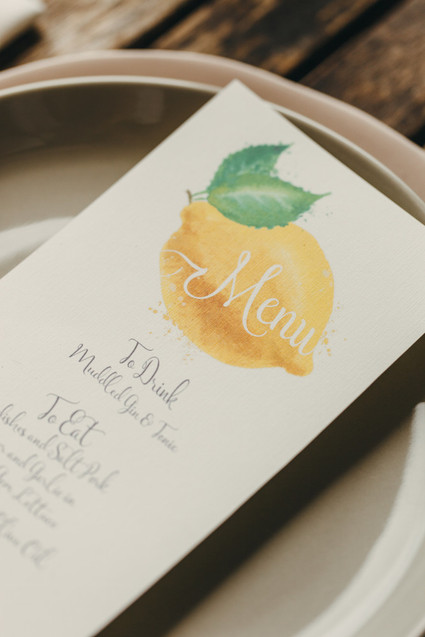 Menu
To Drink
Muddled Gin & Tonic
To Eat
and Salt Pork
and Garlic in
Lettuce
Oil